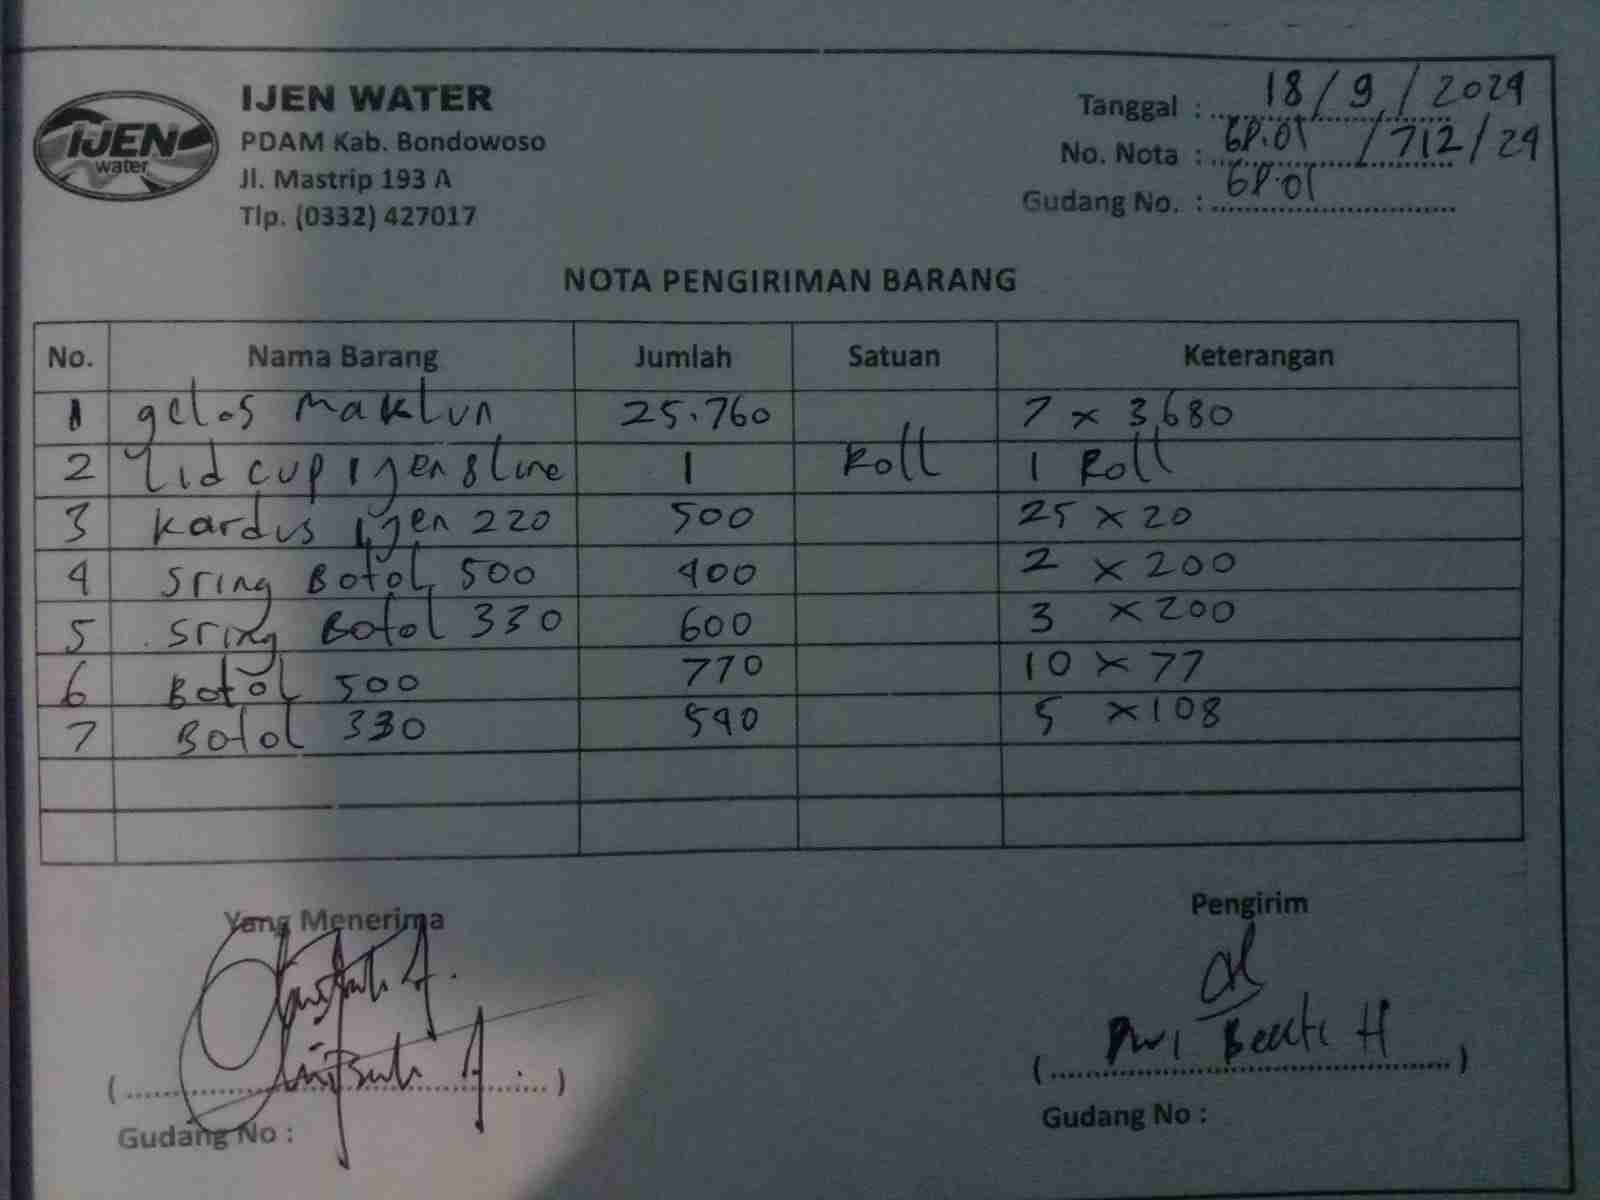 IJEN
water
IJEN WATER
PDAM Kab. Bondowoso
Jl. Mastrip 193 A
Tlp. (0332) 427017
Tanggal : 18/9/2024
No. Nota : GP.01 /712/24
Gudang No. : GP.01
NOTA PENGIRIMAN BARANG
No. Nama Barang Jumlah Satuan Keterangan
1 gelas Maklun 25.760 7 x 3,680
2 Lid cup Ijen 8 line 1 Roll 1 Roll
3 Kardus Ijen 220 500 25 x 20
4 Sring Botol 500 400 2 x 200
5 Sring Botol 330 600 3 x 200
6 Botol 500 770 10 x 77
7 Botol 330 540 5 x 108
Yang Menerima
Gudang No :
Pengirim
Dwi H
Gudang No :